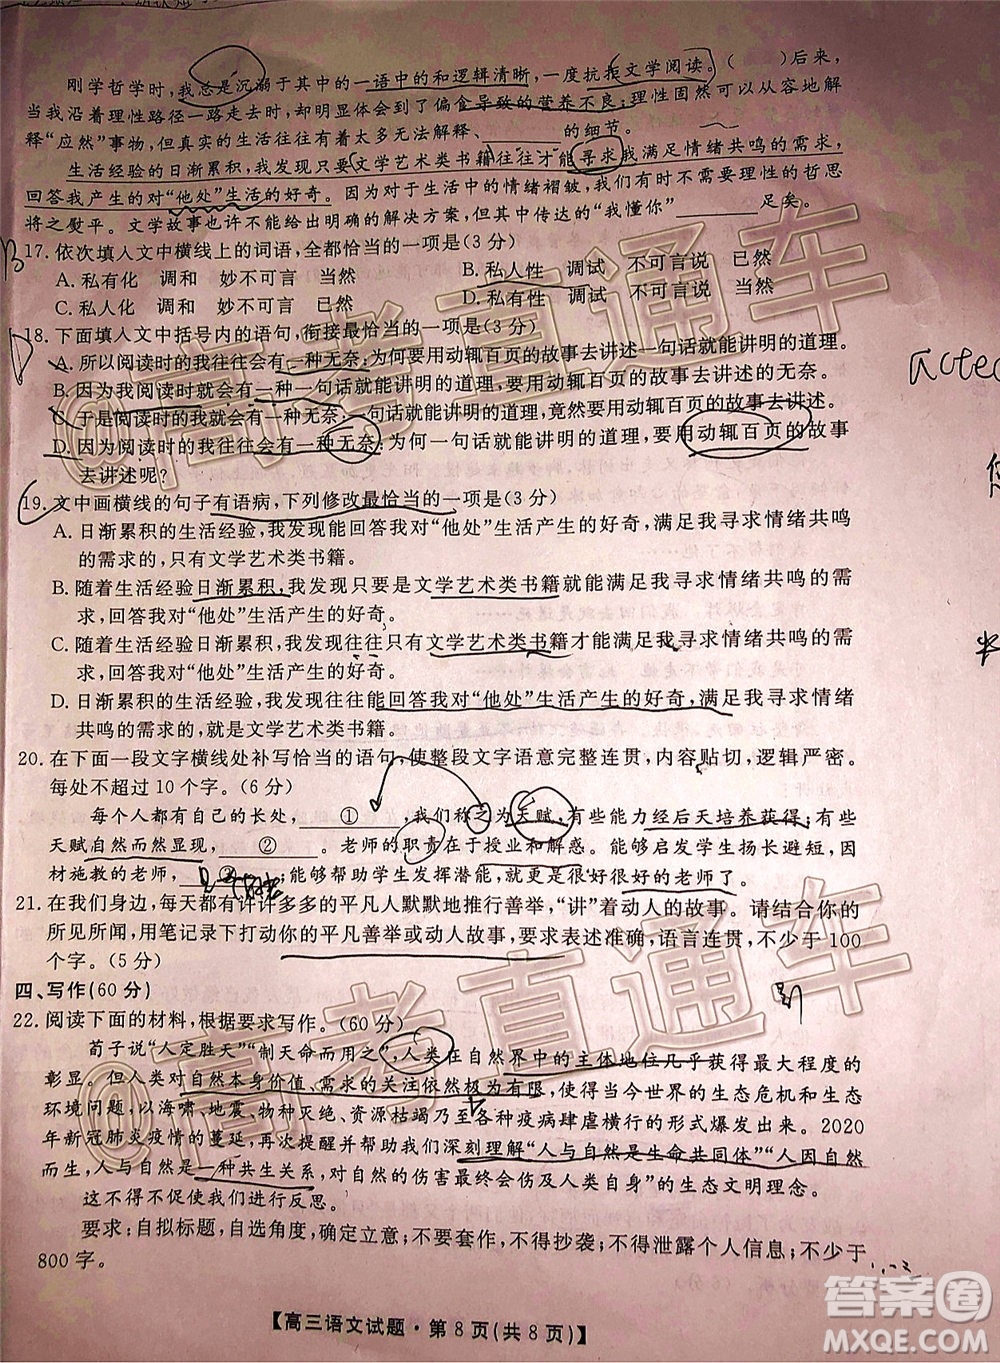 刚学哲学时,我总是沉溺于其中的一语中的和逻辑清晰,一度抗拒文学阅读。(　　)后来,
当我沿着理性路径一路走去时,却明显体会到了偏食导致的营养不良;理性固然可以让我理解、解
释“应然”事物,但真实的生活往往有着太多无法解释、________的细节。
生活经验的日渐累积,我发现只要文学艺术类书籍往往才能寻求我满足情绪共鸣的需求,
回答我产生的对“他处”生活的好奇。因为对于生活中的情绪褶皱,我们并不需要理性的哲思
将之熨平。文学故事也许不能给出明确的解决方案,但其中传达的“我懂你”________足矣。
17.依次填入文中横线上的词语,全都恰当的一项是(3分)
A.私有化　调和　妙不可言　当然
B.私人性　调试　不可言说　已然
C.私人化　调和　妙不可言　已然
D.私有性　调试　不可言说　当然
18.下面填入文中括号内的语句,衔接最恰当的一项是(3分)
A.所以阅读时的我往往会有一种无奈:为何要用动辄百页的故事去讲述一句话就能讲明的道理。
B.因为我阅读时的我就会有一种一句话就能讲明的道理,要用动辄百页的故事去讲述的无奈。
C.于是阅读时的我就会有一种无奈:一句话就能讲明的道理,竟然要用动辄百页的故事去讲述。
D.因为阅读时的我往往会有一种无奈:为何一句话就能讲明的道理,要用动辄百页的故事
去讲述呢?
19.文中画横线的句子有语病,下列修改最恰当的一项是(3分)
A.日渐累积的生活经验,我发现能回答我对“他处”生活产生的好奇,满足我寻求情绪共鸣
的需求的,只有文学艺术类书籍。
B.随着生活经验日渐累积,我发现只要是文学艺术类书籍就能满足我寻求情绪共鸣的需
求,回答我对“他处”生活产生的好奇。
C.随着生活经验日渐累积,我发现往往只有文学艺术类书籍才能满足我寻求情绪共鸣的需
求,回答我对“他处”生活产生的好奇。
D.日渐累积的生活经验,我发现往往能回答我对“他处”生活产生的好奇,满足我寻求情绪
共鸣的需求的,就是文学艺术类书籍。
20.在下面一段文字横线处补写恰当的语句,使整段文字语意完整连贯,内容贴切,逻辑严密。
每处不超过10个字。(6分)
每个人都有自己的长处,　①　,我们称之为天赋;有些能力经后天培养获得;有些
天赋自然而然显现,　②　。老师的职责在于授业和解惑。能够启发学生扬长避短,因
材施教的老师,　③　;能够帮助学生发挥潜能,就是很好很好的老师了。
21.在我们身边,每天都有许许多多的平凡人默默地推行善举,“讲”着动人的故事。请结合你的
所见所闻,用笔记录下打动你的平凡善举或动人故事,要求表述准确,语言连贯,不少于100
个字。(5分)
四、写作(60分)
22.阅读下面的材料,根据要求写作。(60分)
荀子说“人定胜天”“制天命而用之”,人类在自然界中的主体地位几乎获得最大程度的
彰显。但人类对自然本身价值、需求的关注依然极为有限,使得当今世界的生态危机和生态
环境问题,以海啸、地震、物种灭绝、资源枯竭乃至各种疫病肆虐横行的形式爆发出来。2020
年新冠肺炎疫情的蔓延,再次提示并帮助我们深刻理解“人与自然是生命共同体”“人因自然
而生,人与自然是一种共生关系,对自然的伤害最终会伤及人类自身”的生态文明理念。
这不得不促使我们进行反思。
要求:自拟标题,自选角度,确定立意;不要套作,不得抄袭;不得泄露个人信息;不少于
800字。
【高三语文试题·第8页(共8页)】
@高考直通车
@高考直通车
答案圈
MXQE.COM